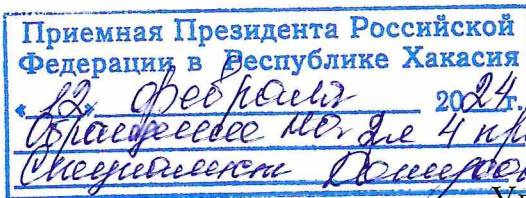 Приемная Президента Российской
Федерации в Республике Хакасия
«12» февраля 2024 г.
Обращение на 2л 4 пр
Специалист